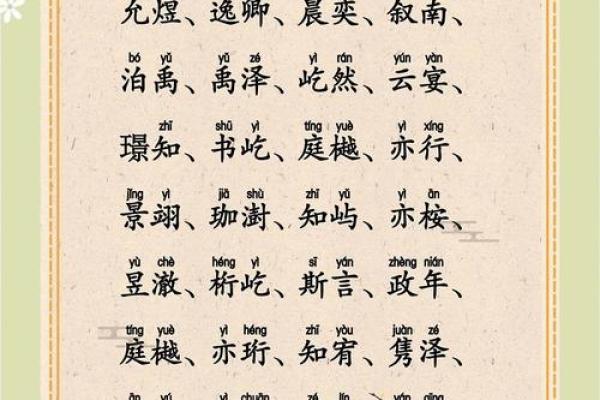 允煜、逸卿、晨奕、叙南、
bó yǔ yǔ zé yì rán yún yàn
泊禹、禹泽、屹然、云宴、
zhī shū yì tíng yuè yì xíng
璟知、书屹、庭樾、亦行、
jǐng yì jiā shù zhī yǔ yì ān
景翊、珈澍、知屿、亦桉、
yù chè héng yì sī yán zhèng nián
昱澈、桁屹、斯言、政年、
tíng yuè yì héng zhī yòu juàn zé
庭樾、亦珩、知宥、隽泽、